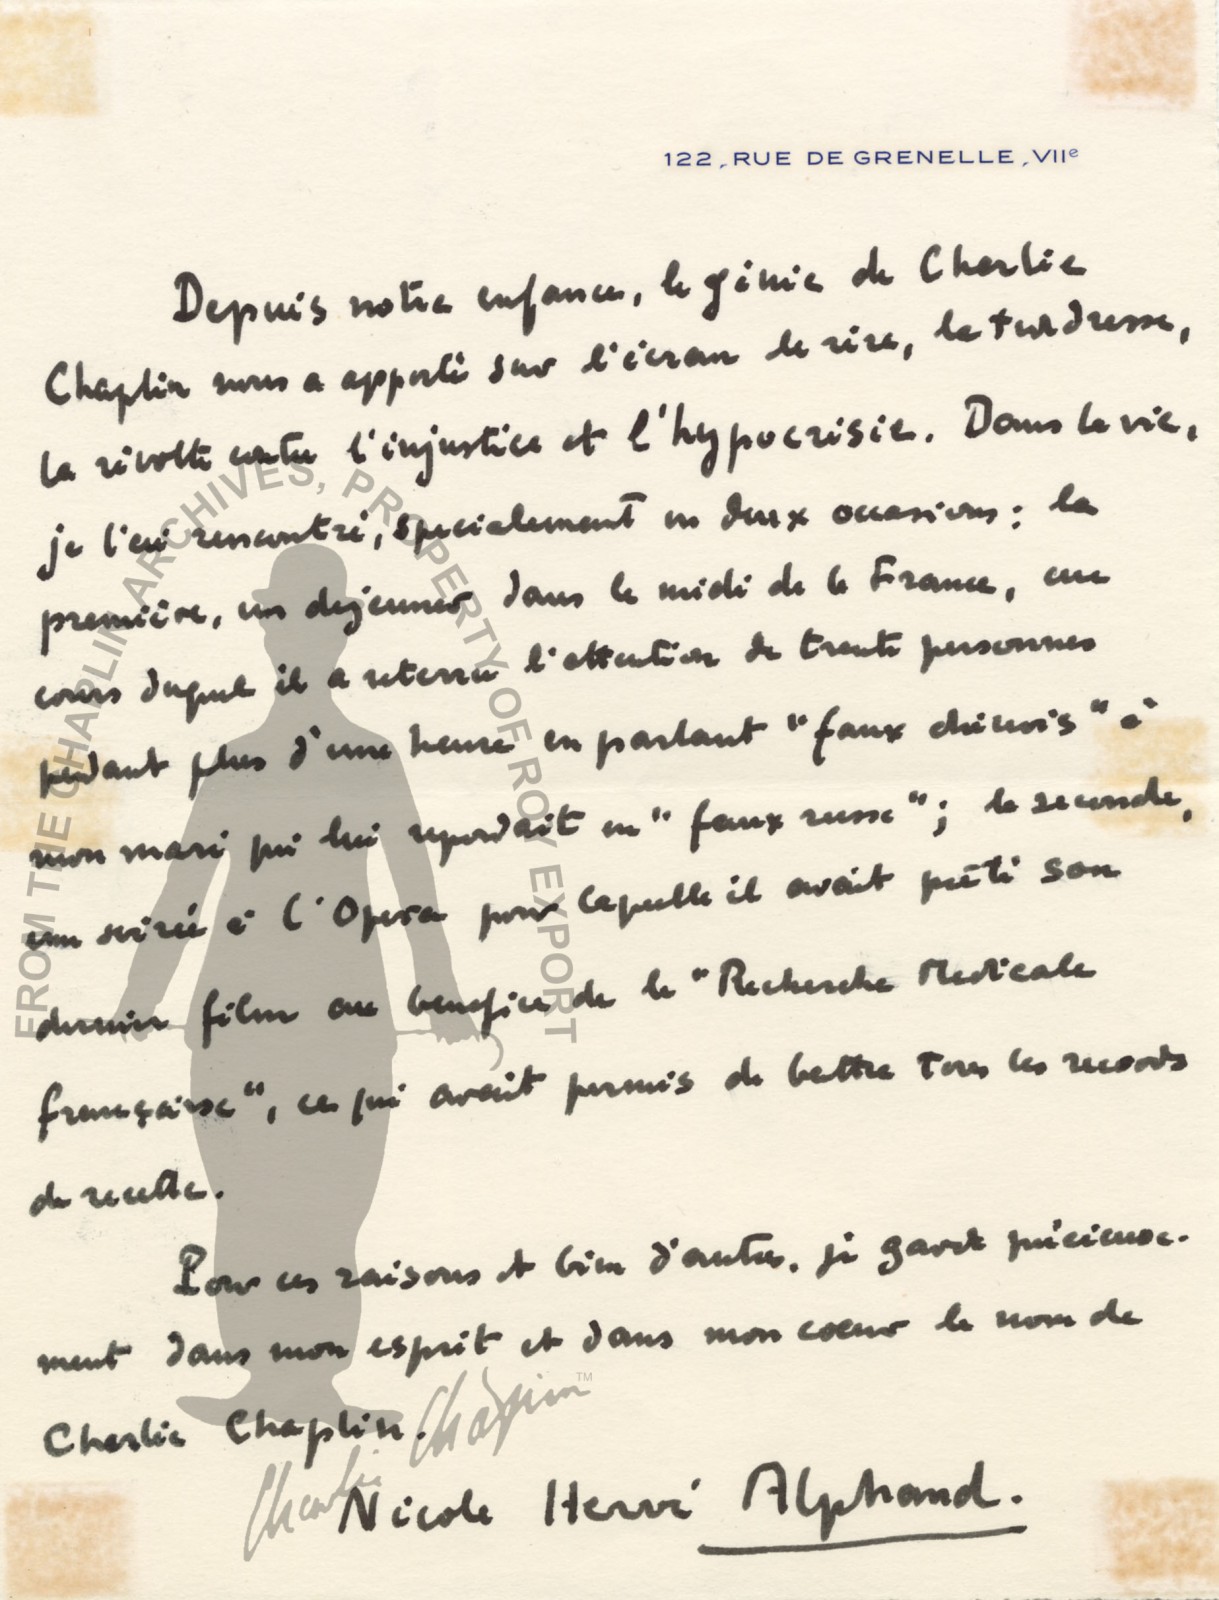 122, RUE DE GRENELLE, VIIe
Depuis notre enfance, le génie de Charlie
Chaplin nous a apporté sur l'écran le rire, la tendresse,
la révolte contre l'injustice et l'hypocrisie. Dans la vie,
je l'ai rencontré, spécialement en deux occasions : la
première, un dejeuner dans le midi de la France, au
cours duquel il a retenu l'attention de trente personnes
pendant plus d'une heure en parlant "faux chinois" à
mon mari qui lui repondait en "faux russe"; la seconde,
une soirée à l'Opera pour laquelle il avait prêté son
dernier film au benefice de la "Recherche Medicale
française", ce qui avait permis de battre tous les records
de recette.
Pour ces raisons et bien d'autres, je garde précieuse-
ment dans mon esprit et dans mon coeur le nom de
Charlie Chaplin.
Nicole Hervé Alphand.
FROM THE CHAPLIN ARCHIVES, PROPERTY OF ROY EXPORT
Charlie Chaplin™